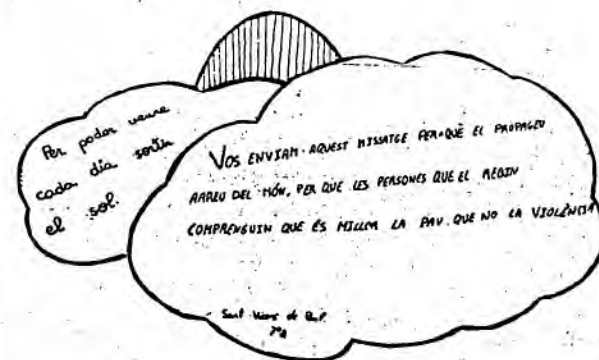 Per poder veure
cada dia sortir
el sol.
VOS ENVIAM AQUEST MISSATGE PER QUÈ EL PROPAGEU
ARREU DEL MÓN, PER QUE LES PERSONES QUE EL REBIN
COMPRENGUIN QUE ÉS MILLOR LA PAU QUE NO LA VIOLÈNCIA
Sant Vicenç de Paül
7è A